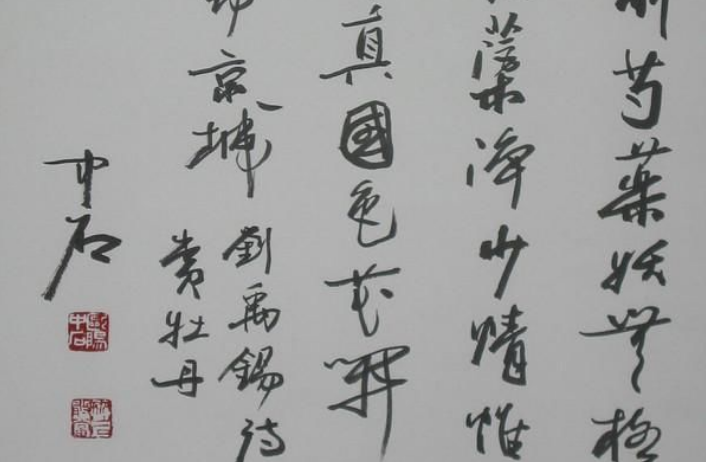 前芍藥妖無格
蕖淨少情惟
真國色花開
京城
劉禹錫詩
賞牡丹
中石
歐陽中石